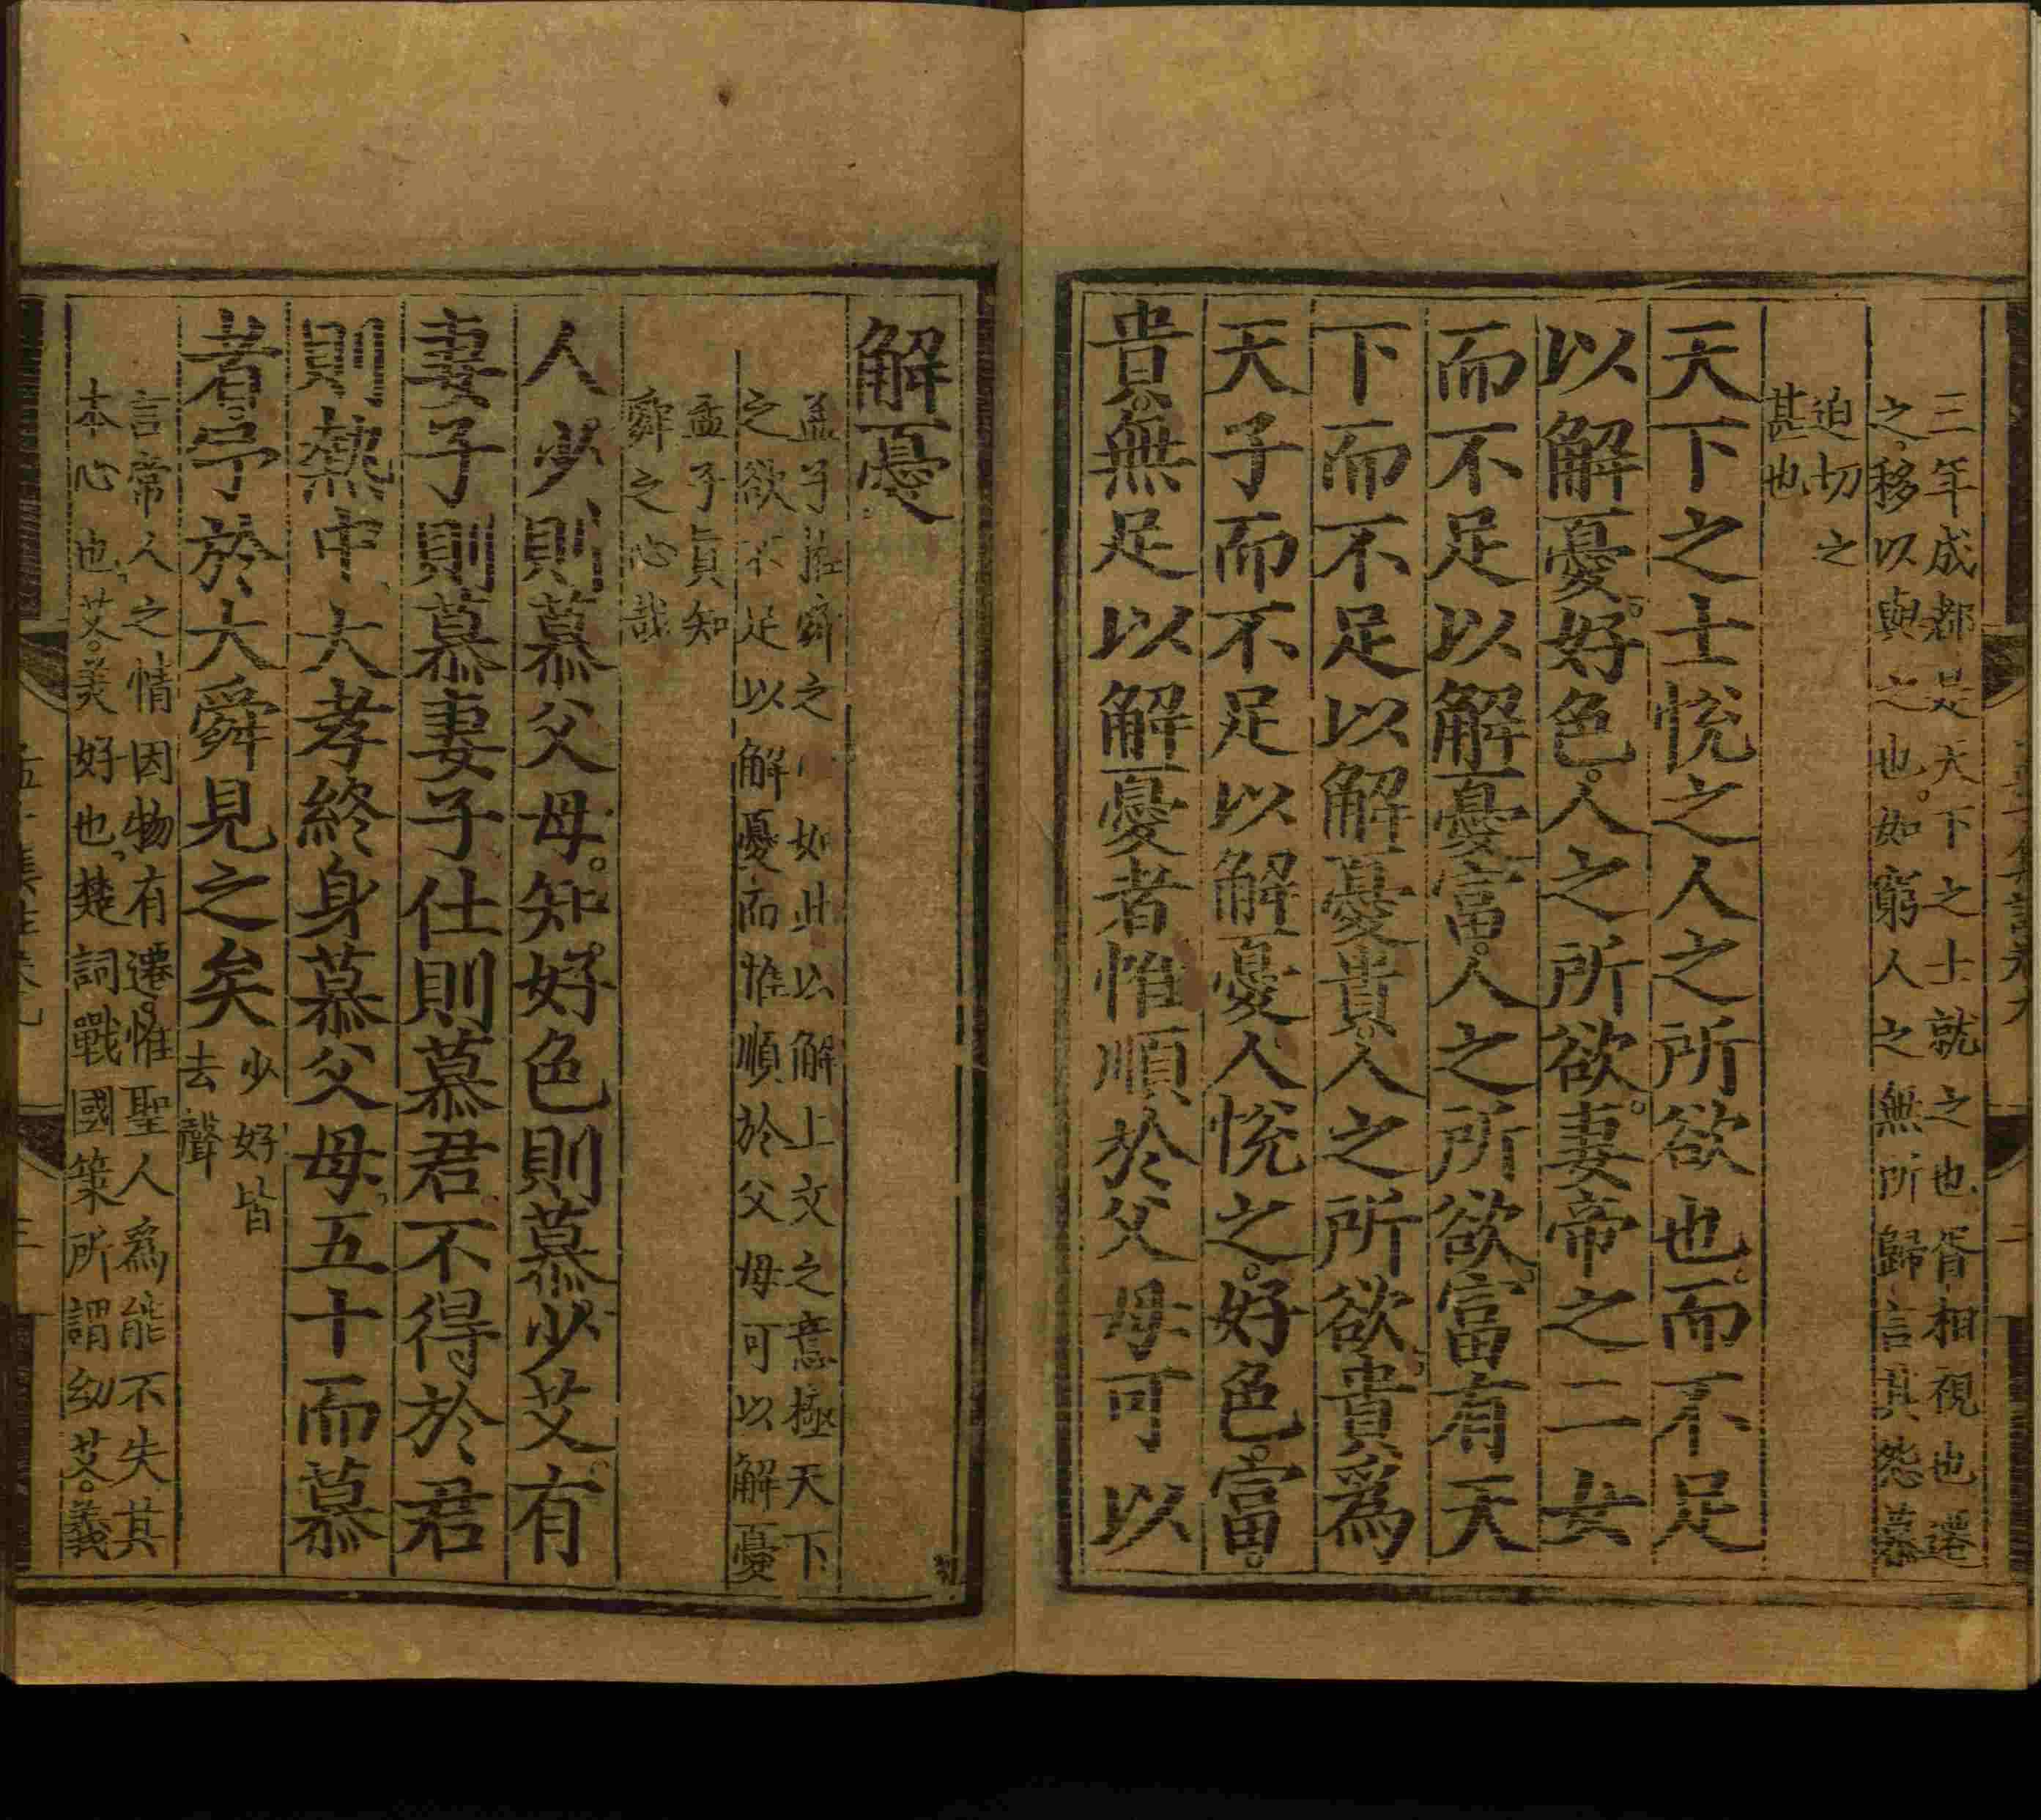 三年成都是天下之士就之也胥相視也遷
之移以與之也如窮人之無所歸言其怨慕
迫切之
甚也
天下之士悅之人之所欲也而不足
以解憂好色人之所欲妻帝之二女
而不足以解憂富人之所欲富有天
下而不足以解憂貴人之所欲貴爲
天子而不足以解憂人悅之好色富
貴無足以解憂者惟順於父母可以
解憂
孟子推舜之心如此以解上文之意極天下
之欲不足以解憂而惟順於父母可以解憂
孟子真知
舜之心哉
人少則慕父母知好色則慕少艾有
妻子則慕妻子仕則慕君不得於君
則熱中大孝終身慕父母五十而慕
者予於大舜見之矣
少好皆
去聲
言常人之情因物有遷惟聖人爲能不失其
本心也艾美好也楚詞戰國策所謂幼艾義